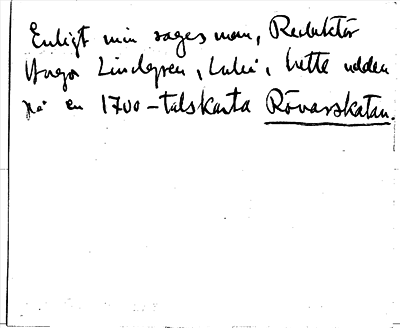 Enligt min sagesman, Redaktör
Hugo Lindgren, Luleå, hette udden
på en 1700-talskarta Rövarskatan.